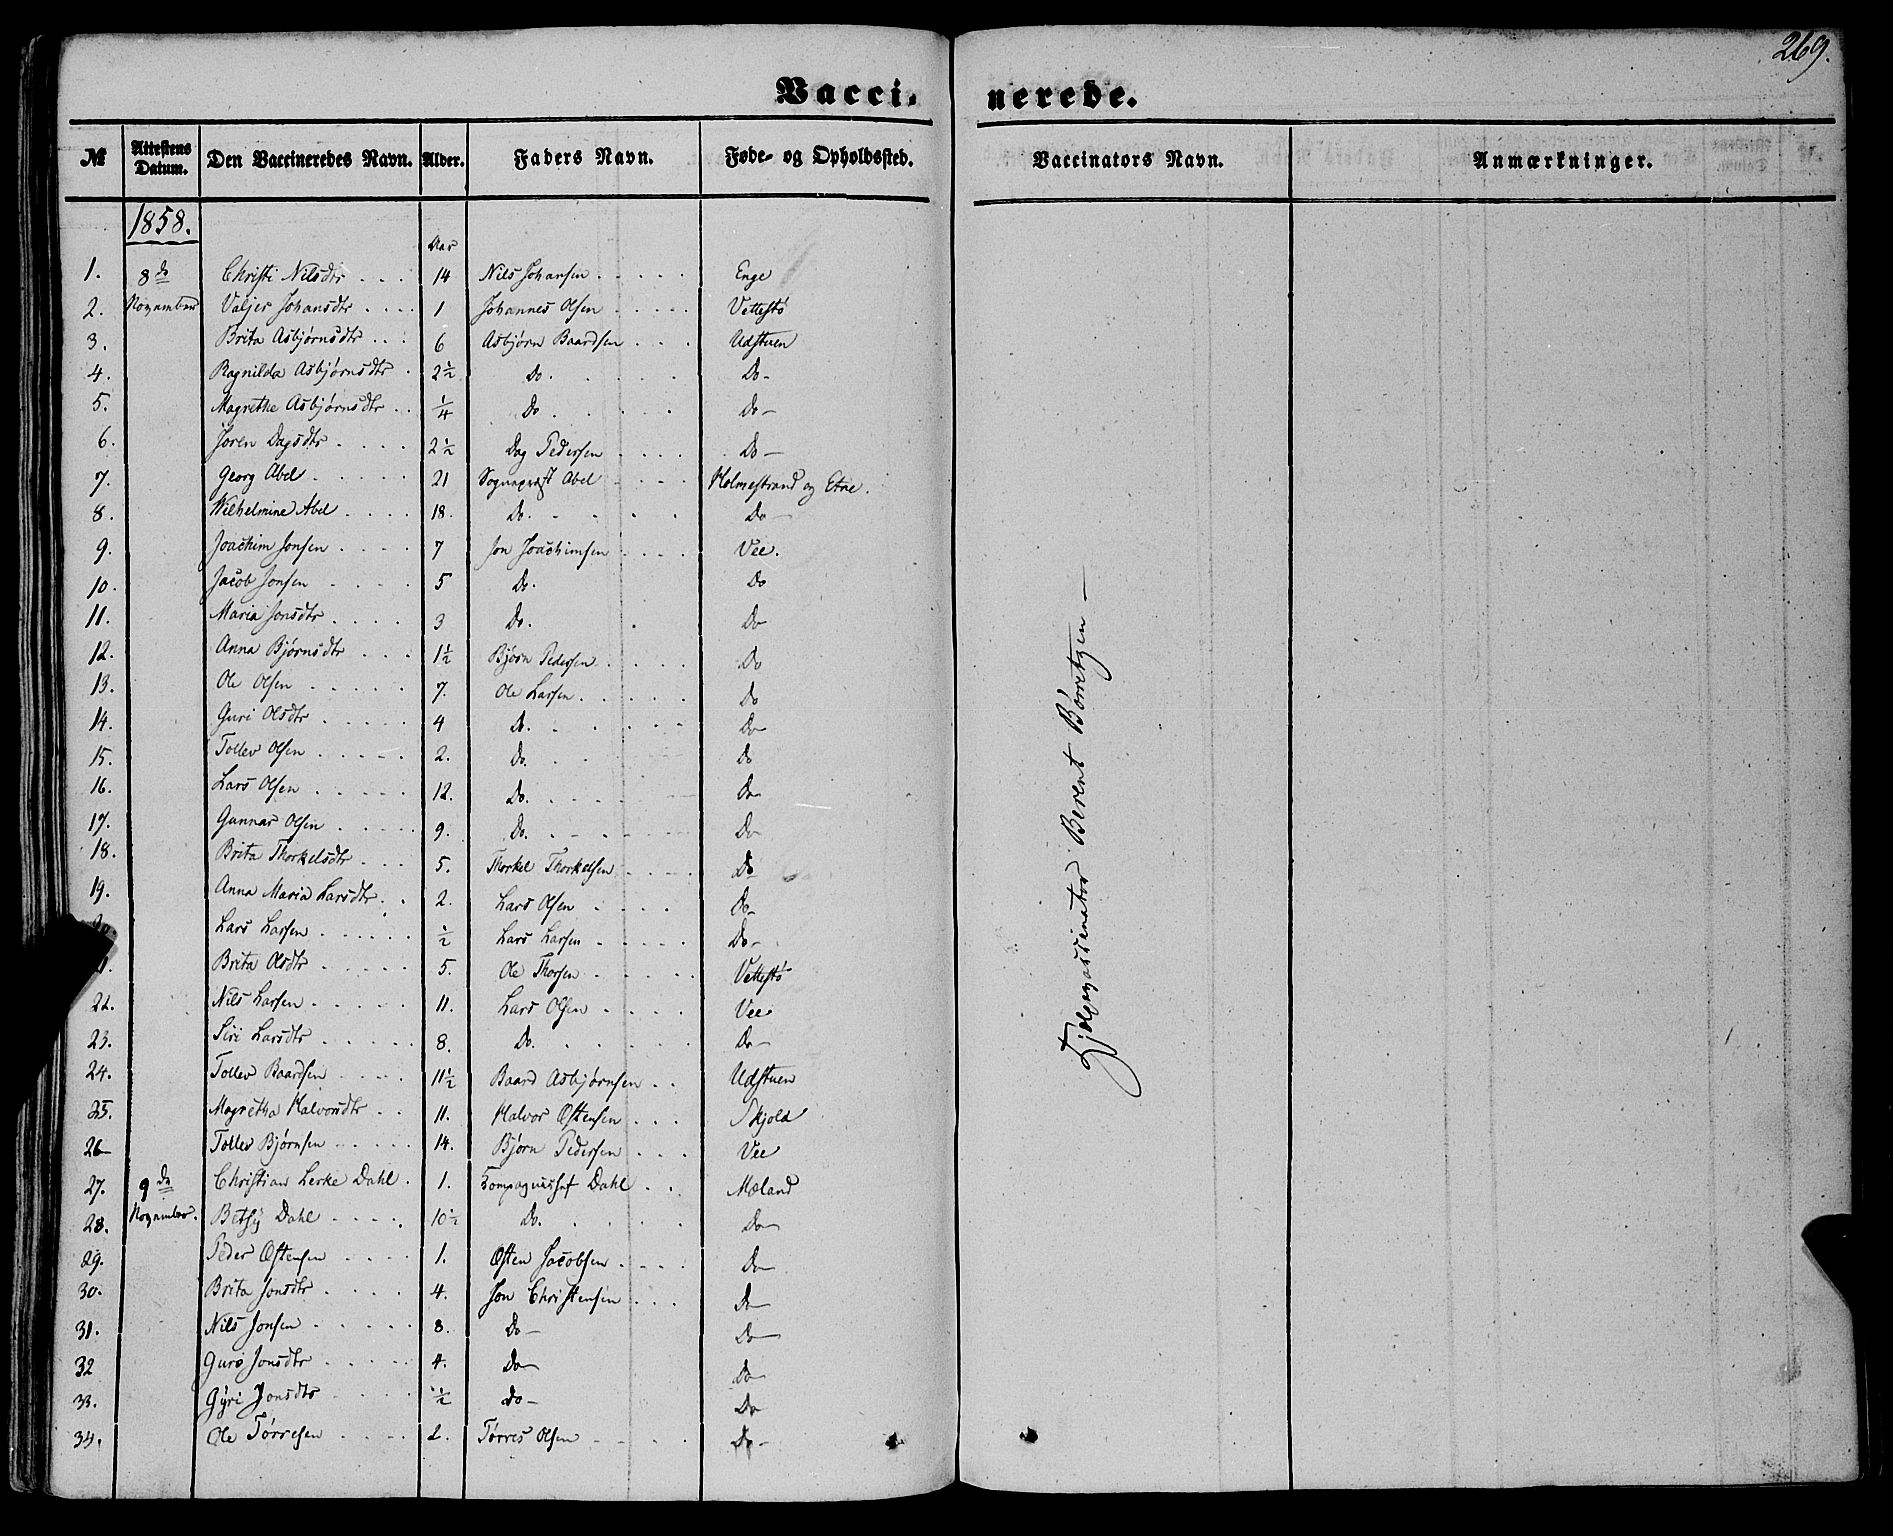 269.
Vacci. nerede.
№ Attestens Datum. Den Vaccineredes Navn. Alder. Faders Navn. Føde- og Opholdssted. Vaccinators Navn. Anmærkninger.
1858.
Aar
1. 8de Christi Nilsdtr . . . 14 Nils Johansen . . . . . Enge
2. November Valjer Johansdtr . . . . 1 Johannes Olsen . . . . . Vettestø
3. Brita Asbjørnsdtr . . . 6 Asbjørn Baardsen . . . Udstuen
4. Ragnilda Asbjørnsdtr . 2½ Do. . . . . Do-
5. Magrethe Asbjørnsdtr . . ¼ Do . . . . . Do-
6. Joren Dagsdtr . . . . 2½ Dag Pedersen . . . . Do-
7. Georg Abel . . . . . 21 Sognepræst Abel - . . . Holmestrand og Etne.
8. Wilhelmine Abel . . . . 18. Do. - . . . Do-
9. Joachim Jonsen . . . . 7 Jon Joachimsen . . . . Vee.
10. Jacob Jonsen . . . . 5 Do. Do
11. Maria Jonsdtr . . . . 3 Do. . Do
12. Anna Bjørnsdtr . . . 1½ Bjørn Pedersen . . . . Do
13. Ole Olsen . . . . . 7. Ole Larsen . . . . . Do
14. Guri Olsdtr . . . . 4 Do. . . . . Do
15. Tollev Olsen . . . . . 2. Do. . . Do
16. Lars Olsen . . . . . 12. Do. . . . . Do
17. Gunnar Olsen . . . . 9. Do. . - . - . Do
18. Brita Thorkelsdtr . . . 5. Thorkel Thorkelsen . . . . Do
19. Anna Maria Larsdtr . . 2. Lars Olsen . . . . Do-
Lars Larsen . . . . . ½ Lars Larsen . . . . . Do-
Brita Olsdtr . . . . . 5. Ole Thorsen . . . . . Vettestø
22. Nils Larsen . . . . . 11. Lars Olsen . . . . Vee
23. Siri Larsdtr . . . . . 8. Do. . . . . . Do-
24. Tollev Baardsen . . . . 11½ Baard Asbjørnsen . . Udstuen
25. Magretha Halvorsdtr . . 11. Halvor Østensen . . . Skjold
26 Tollev Bjørnsen . . . . 14. Bjørn Pedersen . . . Vee
27. 9de Christian Lerke Dahl . 1. Kompagnichef Dahl . . Mæland
28. November. Betsy Dahl . . . . . 10½ Do. . . . . Do-
29. Peder Østensen . . . . 1. Østen Jacobsen . . . . Do-
30. Brita Jonsdtr . . . . 4. Jon Christensen . . . Do-
31. Nils Jonsen . . . . . 8. Do- Do-
32 Guro Jonsdtr . . . . . 4. Do- Do-
33. Gyri Jonsdtr . . . . ½ Do- Do
34. Ole Tørresen . . . . 2. Tørres Olsen . . . . Do-
Hjelpevaccinator Berent Børretzen -